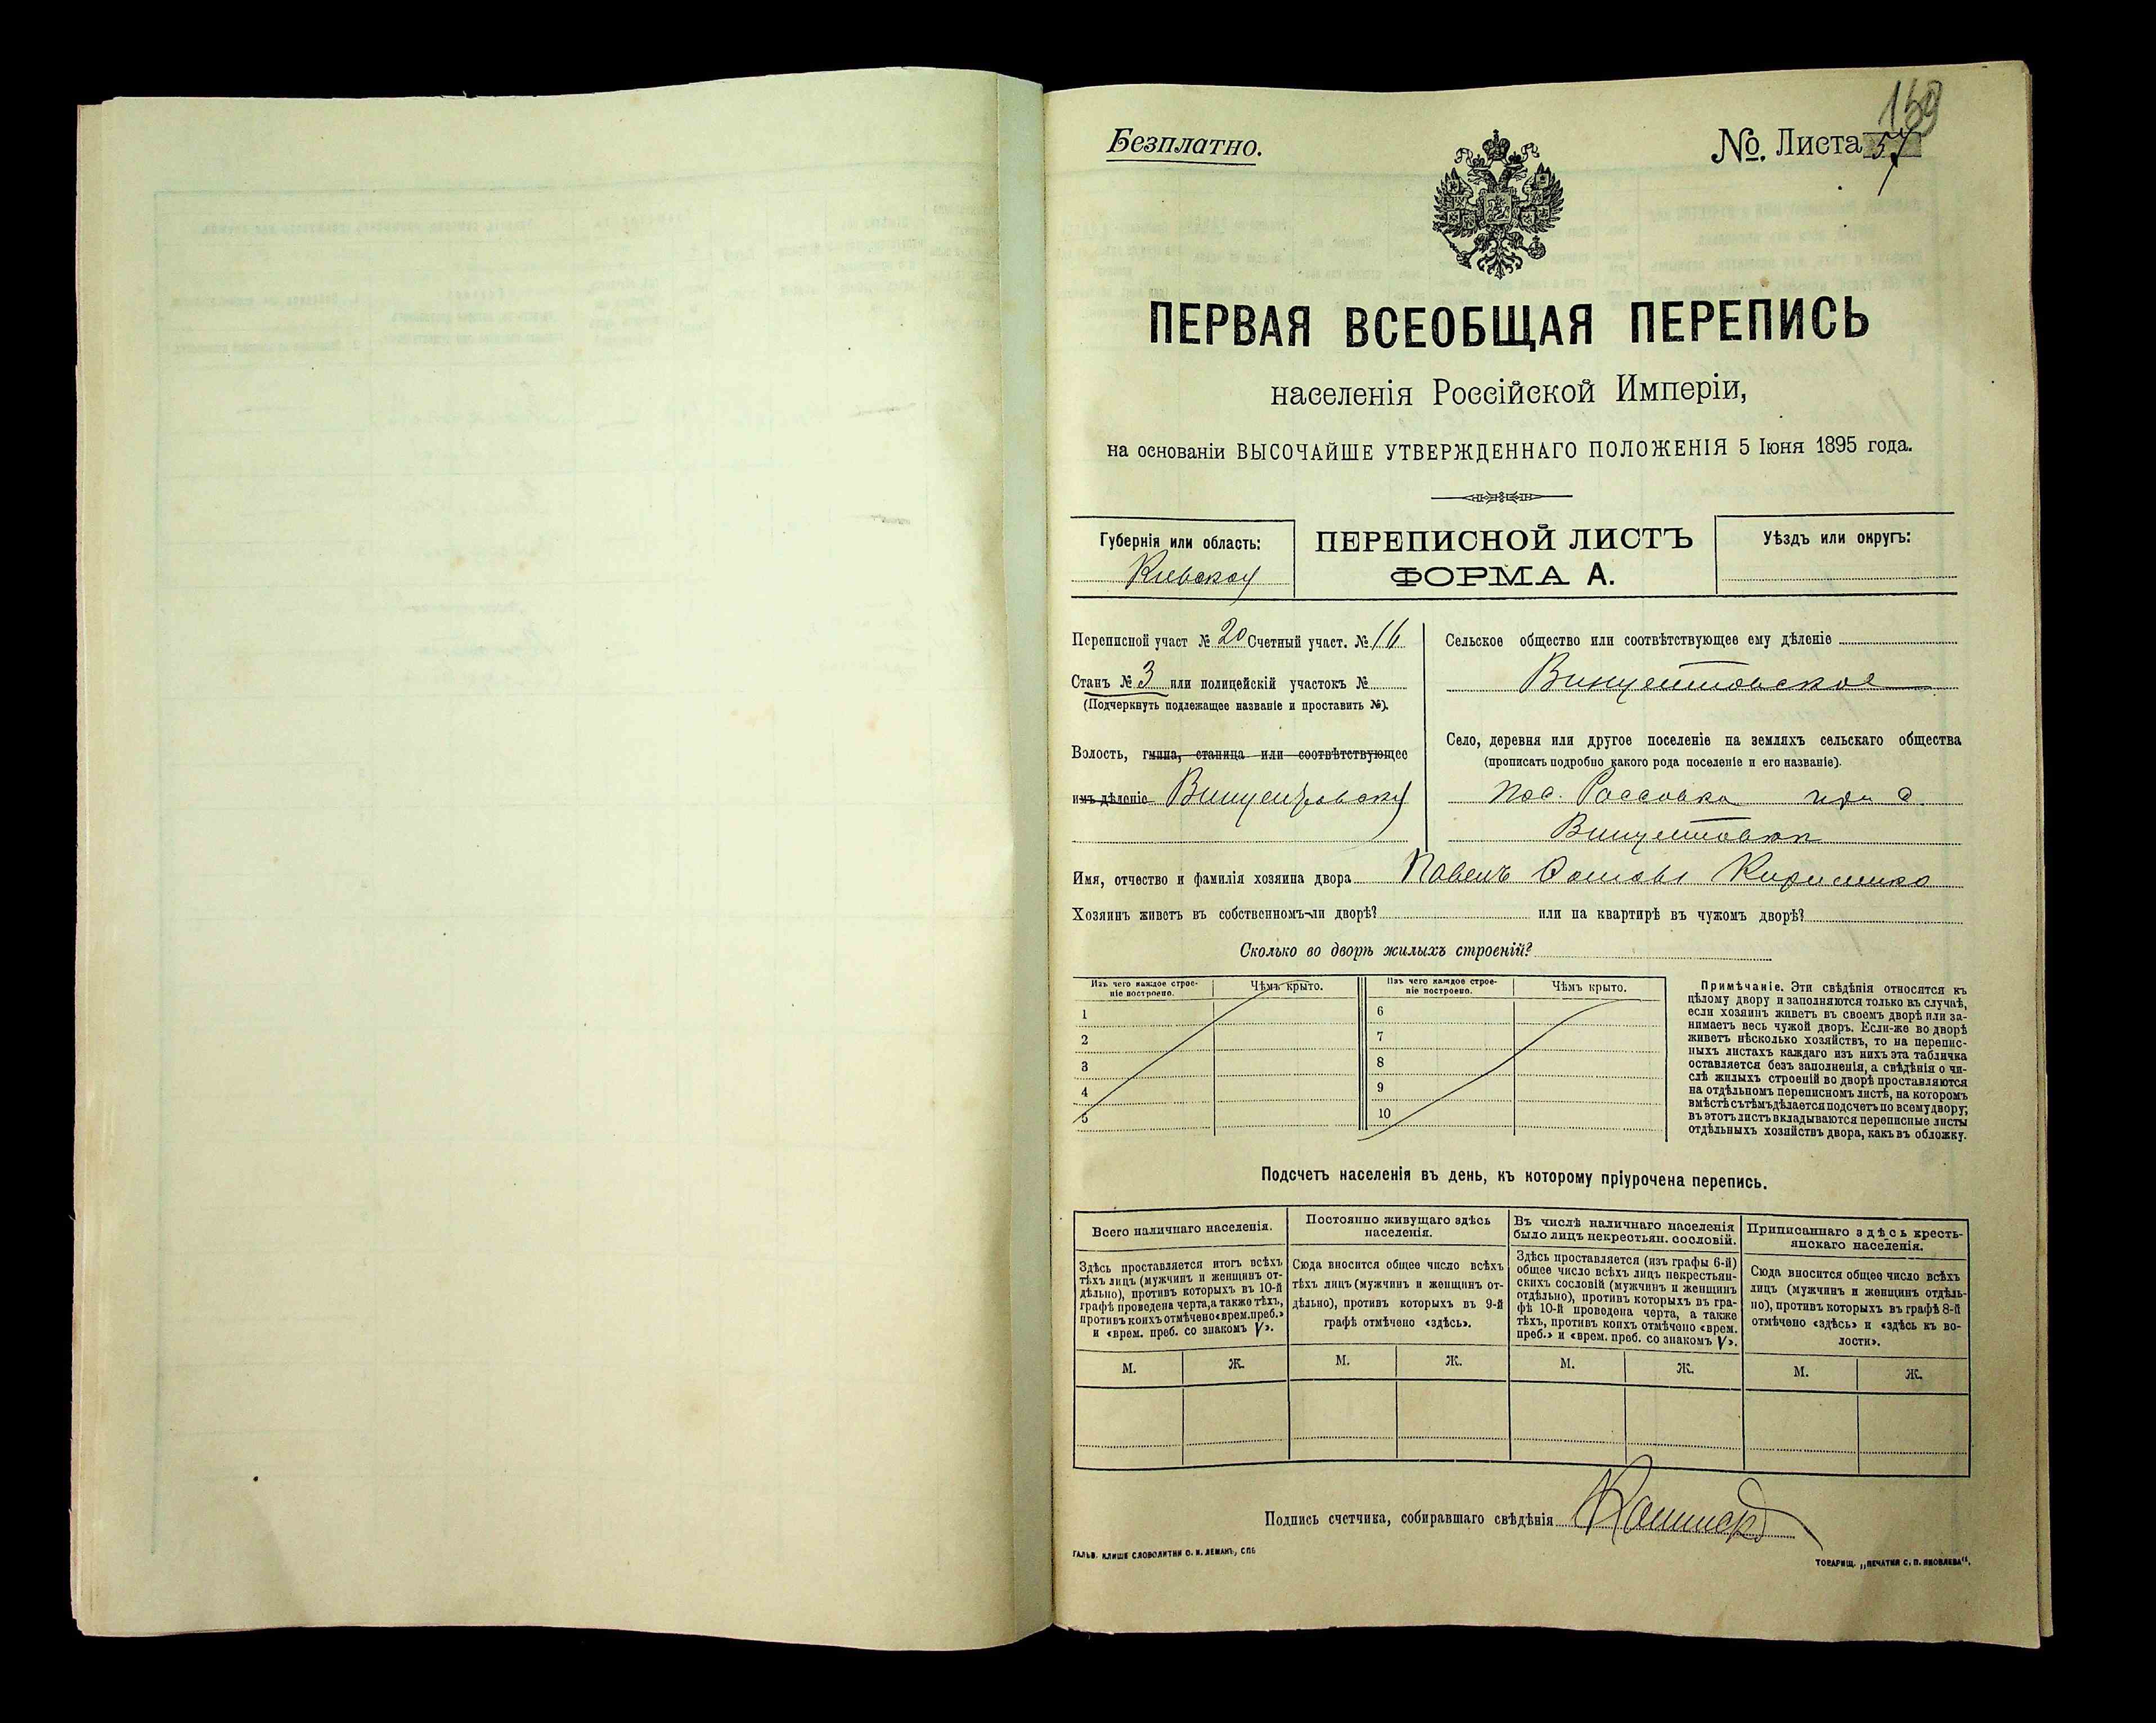 169
Безплатно.
№. Листа 57
ПЕРВАЯ ВСЕОБЩАЯ ПЕРЕПИСЬ
населенія Россійской Имперіи,
на основаніи ВЫСОЧАЙШЕ УТВЕРЖДЕННАГО ПОЛОЖЕНІЯ 5 Іюня 1895 года.
Губернія или область:
Кіевская
ПЕРЕПИСНОЙ ЛИСТЪ
ФОРМА А.
Уѣздъ или округъ:
Переписной участ № 20 Счетный участ. № 16
Станъ № 3 или полицейскій участокъ №
(Подчеркнуть подлежащее названіе и проставить №).
Волость, гмина, станица или соотвѣтствующее
имъ дѣленіе Винцентовская
Сельское общество или соотвѣтствующее ему дѣленіе
Винцентовское
Село, деревня или другое поселеніе на земляхъ сельскаго общества
(прописать подробно какого рода поселеніе и его названіе).
пос. Россовка при с.
Винцентовки
Имя, отчество и фамилія хозяина двора Павелъ
Хозяинъ живетъ въ собственномъ-ли дворѣ? или на квартирѣ въ чужомъ дворѣ?
Сколько во дворѣ жилыхъ строеній?
Изъ чего каждое строе-
ніе построено.
Чѣмъ крыто.
Изъ чего каждое строе-
ніе построено.
Чѣмъ крыто.
1
2
3
4
5
6
7
8
9
10
Примѣчаніе. Эти свѣдѣнія относятся къ
цѣлому двору и заполняются только въ случаѣ,
если хозяинъ живетъ въ своемъ дворѣ или за-
нимаетъ весь чужой дворъ. Если-же во дворѣ
живетъ нѣсколько хозяйствъ, то на перепис-
ныхъ листахъ каждаго изъ нихъ эта табличка
оставляется безъ заполненія, а свѣдѣнія о чи-
слѣ жилыхъ строеній во дворѣ проставляются
на отдѣльномъ переписномъ листѣ, на которомъ
вмѣстѣ съ тѣмъ дѣлается подсчетъ по всему двору;
въ этотъ листъ вкладываются переписные листы
отдѣльныхъ хозяйствъ двора, какъ въ обложку.
Подсчетъ населенія въ день, къ которому пріурочена перепись.
Всего наличнаго населенія.
Здѣсь проставляется итогъ всѣхъ
тѣхъ лицъ (мужчинъ и женщинъ от-
дѣльно), противъ которыхъ въ 10-й
графѣ проведена черта, а также тѣхъ,
противъ коихъ отмѣчено «врем. преб.»
и «врем. преб. со знакомъ V».
М. Ж.
Постоянно живущаго здѣсь
населенія.
Сюда вносится общее число всѣхъ
тѣхъ лицъ (мужчинъ и женщинъ от-
дѣльно), противъ которыхъ въ 9-й
графѣ отмѣчено «здѣсь».
М. Ж.
Въ числѣ наличнаго населенія
было лицъ некрестьян. сословій.
Здѣсь проставляется (изъ графы 6-й)
общее число всѣхъ лицъ некрестьян-
скихъ сословій (мужчинъ и женщинъ
отдѣльно), противъ которыхъ въ гра-
фѣ 10-й проведена черта, а также
тѣхъ, противъ коихъ отмѣчено «врем.
преб.» и «врем. преб. со знакомъ V».
М. Ж.
Приписаннаго здѣсь кресть-
янскаго населенія.
Сюда вносится общее число всѣхъ
лицъ (мужчинъ и женщинъ отдѣль-
но), противъ которыхъ въ графѣ 8-й
отмѣчено «здѣсь» и «здѣсь къ во-
лости».
М. Ж.
Подпись счетчика, собиравшаго свѣдѣнія
ГАЛЬВ. КЛИШЕ СЛОВОЛИТНИ О. И. ЛЕМАНЪ, СПБ
ТОВАРИЩ. „ПЕЧАТНЯ С. П. ЯКОВЛЕВА“.